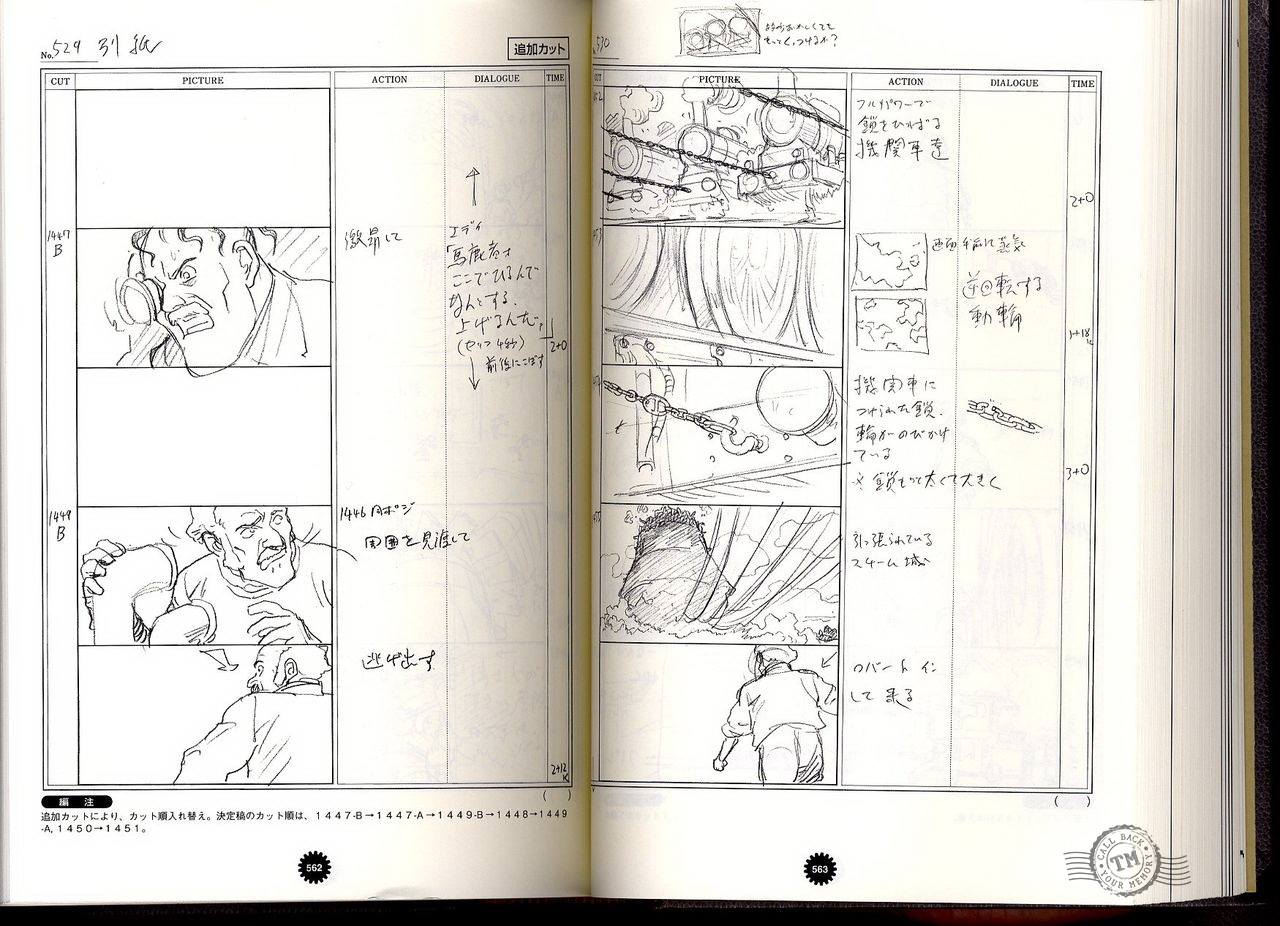 No. 529 引紙
追加カット
CUT PICTURE ACTION DIALOGUE TIME
1447
B
激昂して
エディ
「馬鹿者!
ここでひるんで
なんとする。
上げるんだ。」
(セリフ4秒)
前後にこぼす
2+0
1449
B
1446 同ポジ
周囲を見渡して
逃げ出す
2+12
K
( )
編 注
追加カットにより、カット順入れ替え。決定稿のカット順は、1447-B→1447-A→1449-B→1448→1449
-A, 1450→1451。
562
530
CUT PICTURE ACTION DIALOGUE TIME
フルパワーで
鎖をひっぱる
機関車達
2+0
画面手前に蒸気
逆回転する
動輪
1+18
K
機関車に
つけられた鎖.
輪がのびかけ
ている
※鎖もっと太くて大きく
3+0
引っ張られている
スチーム城
ロバート イン
して来る
( )
563
CALL BACK
TM
YOUR MEMORY